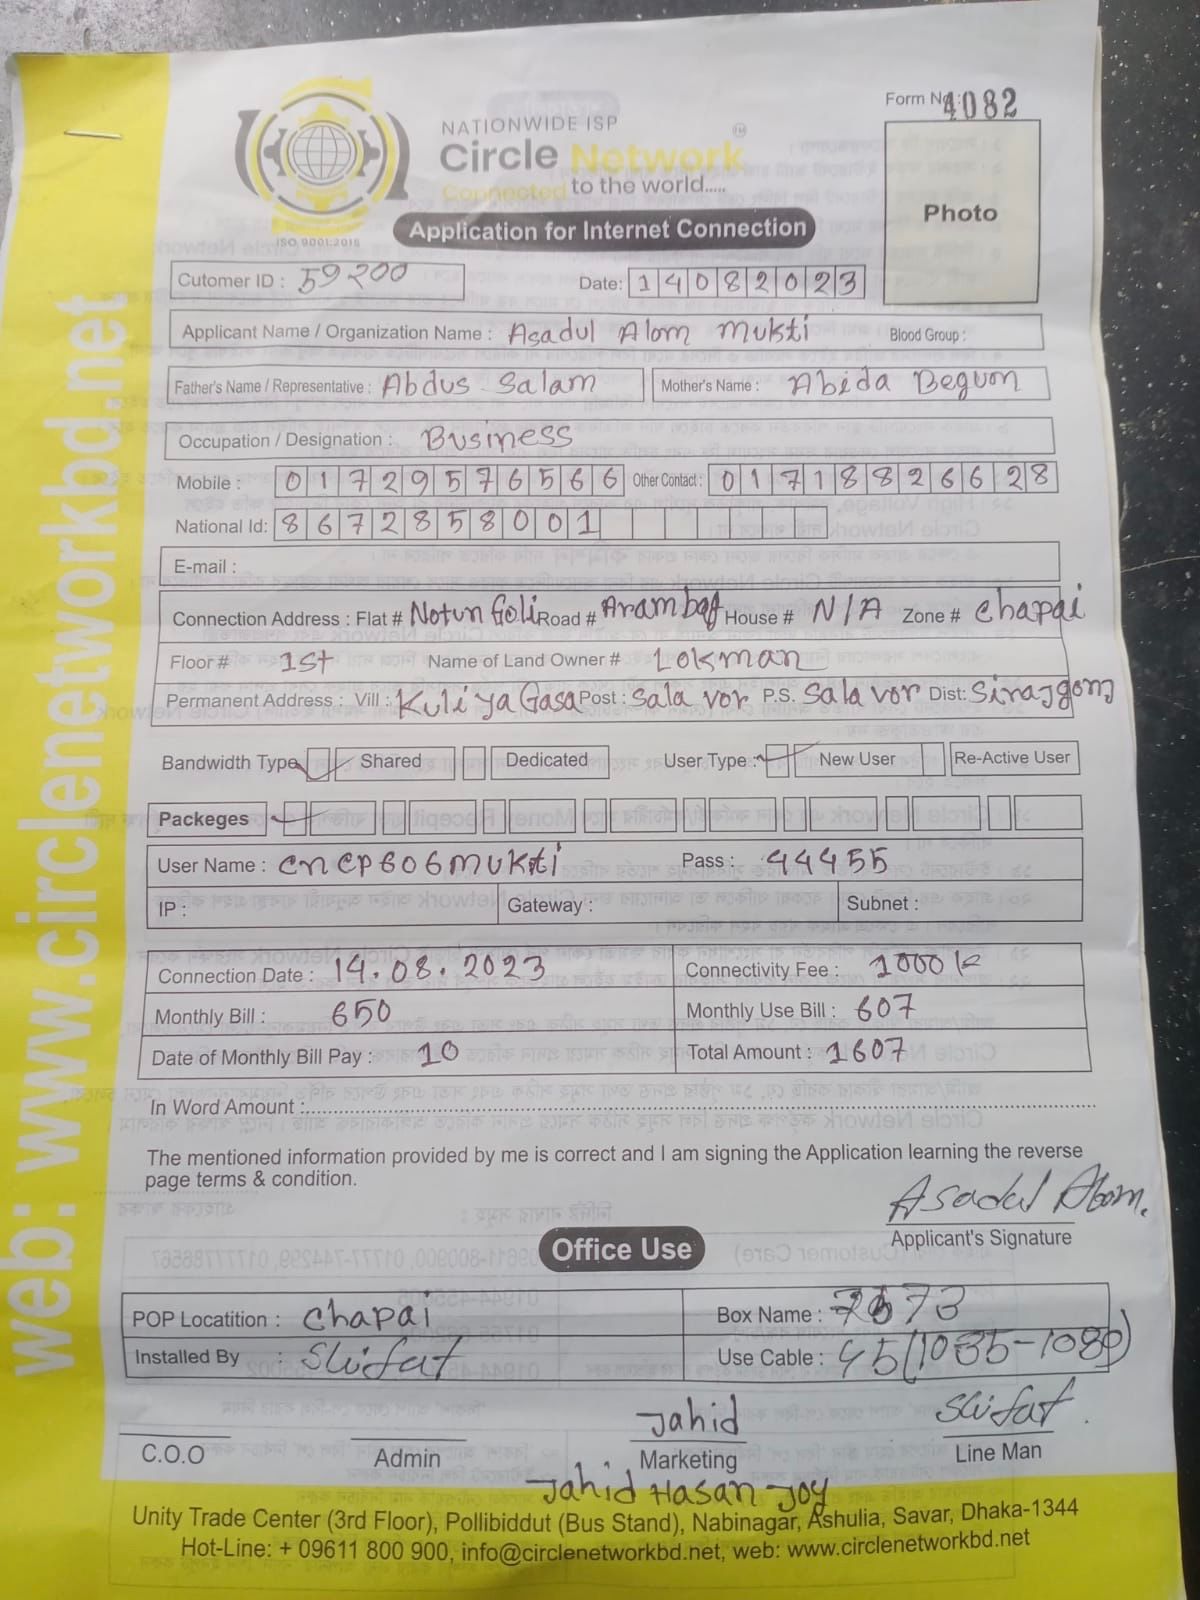 Form No: 4082
NATIONWIDE ISP
Circle Network TM
Connected to the world.....
ISO 9001:2018
Application for Internet Connection
Photo
Cutomer ID : 59200 Date: 14082023
Applicant Name / Organization Name : Asadul Alom Mukti Blood Group :
Father's Name / Representative : Abdus Salam Mother's Name : Abida Begum
Occupation / Designation : Business
Mobile : 01729576566 Other Contact : 01718826628
National Id: 8672858001
E-mail :
Connection Address : Flat # Notun Goli Road # Arambag House # N/A Zone # Chapai
Floor # 1st Name of Land Owner # Lokman
Permanent Address : Vill : Kuliya Gasa Post : Sala vor P.S. Sala vor Dist: Sirajgonj
Bandwidth Type Shared Dedicated User Type : New User Re-Active User
Packeges
User Name : cncp606mukti Pass : 44455
IP : Gateway : Subnet :
Connection Date : 14.08.2023 Connectivity Fee : 1000 tk
Monthly Bill : 650 Monthly Use Bill : 607
Date of Monthly Bill Pay : 10 Total Amount : 1607
In Word Amount :
The mentioned information provided by me is correct and I am signing the Application learning the reverse
page terms & condition.
Asadul Alom.
Applicant's Signature
Office Use
POP Locatition : Chapai Box Name :
Installed By : Shifat Use Cable : 45(1035-1080)
Jahid Shifat
C.O.O Admin Marketing Line Man
Jahid Hasan Joy
Unity Trade Center (3rd Floor), Pollibiddut (Bus Stand), Nabinagar, Ashulia, Savar, Dhaka-1344
Hot-Line: + 09611 800 900, info@circlenetworkbd.net, web: www.circlenetworkbd.net
web: www.circlenetworkbd.net